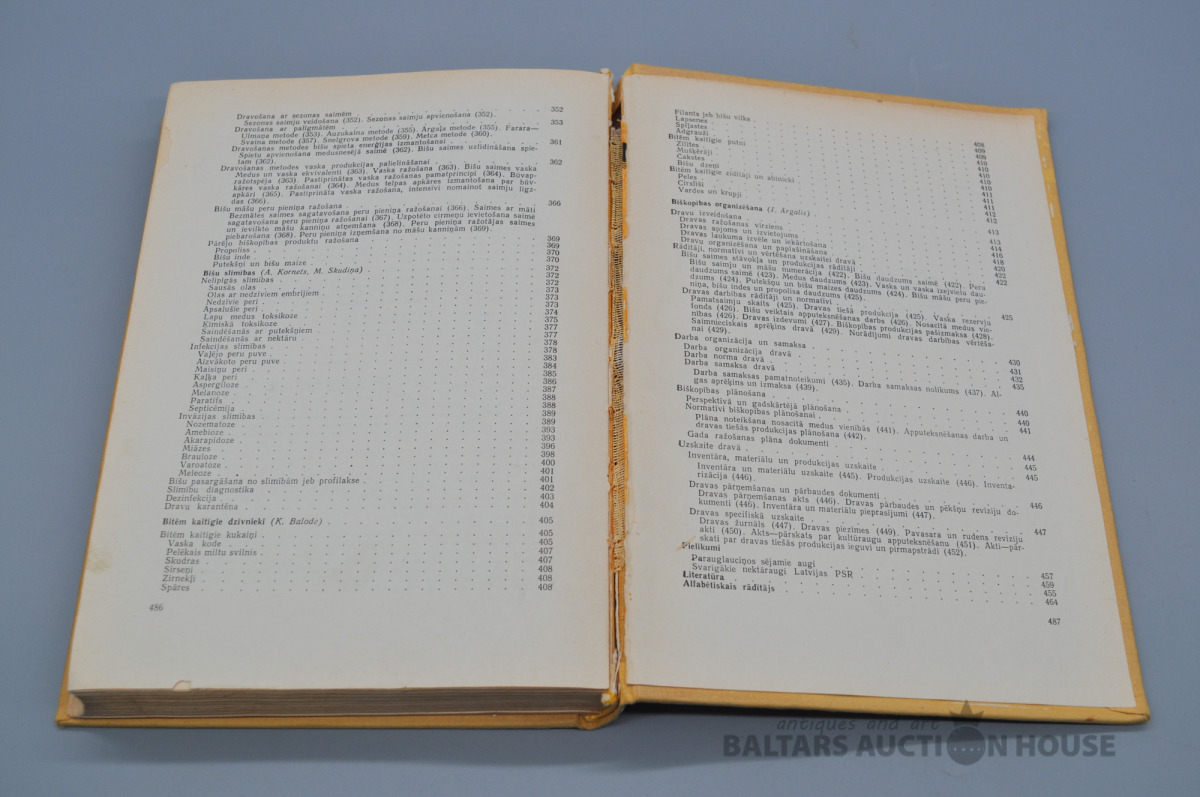 Dravošana ar sezonas saimēm . . . 352
Sezonas saimju veidošana (352). Sezonas saimju apvienošana (352).
Dravošana ar palīgmātēm . . . 353
Ulmaņa metode (353). Auzukalna metode (355). Argaļa metode (355). Farara—
Svaina metode (357). Snelgrova metode (359). Metca metode (360).
Dravošanas metodes bišu spieta enerģijas izmantošanai . . . 361
Spietu apvienošana medusnesējā saimē (362). Bišu saimes uzlidināšana spie-
tam (362).
Dravošanas metodes vaska produkcijas palielināšanai . . . 362
Medus un vaska ekvivalenti (363). Vaska ražošana (363). Bišu saimes vaska
ražotspēja (363). Pastiprinātas vaska ražošanas pamatprincipi (364). Būvap-
kāres vaska ražošanai (364). Medus telpas apkāres izmantošana par būv-
apkāri (365). Pastiprināta vaska ražošana, intensīvi nomainot saimju ligz-
das (366).
Bišu māšu peru pieniņa ražošana . . . 366
Bezmātes saimes sagatavošana peru pieniņa ražošanai (366). Saimes ar māti
sagatavošana peru pieniņa ražošanai (367). Uzpotēto cirmeņu ievietošana saimē
un ievilkto māšu kanniņu atņemšana (368). Peru pieniņa ražotājas saimes
piebarošana (368). Peru pieniņa izņemšana no māšu kanniņām (369).
Pārējo biškopības produktu ražošana . . . 369
Propoliss . . . 369
Bišu inde . . . 370
Putekšņi un bišu maize . . . 370
Bišu slimības (A. Kornets, M. Skudiņa) . . . 372
Nelipīgās slimības . . . 372
Sausās olas . . . 372
Olas ar nedzīviem embrijiem . . . 373
Nedzīvie peri . . . 373
Apsalušie peri . . . 373
Lapu medus toksikoze . . . 374
Ķīmiskā toksikoze . . . 375
Saindēšanās ar putekšņiem . . . 377
Saindēšanās ar nektāru . . . 377
Infekcijas slimības . . . 378
Vaļējo peru puve . . . 378
Aizvākoto peru puve . . . 383
Maisiņu peri . . . 384
Kaļķa peri . . . 385
Aspergiloze . . . 386
Melanoze . . . 387
Paratīfs . . . 388
Septicēmija . . . 388
Invāzijas slimības . . . 389
Nozematoze . . . 389
Amebioze . . . 393
Akarapidoze . . . 393
Miāzes . . . 396
Brauloze . . . 398
Varoatoze . . . 400
Meleoze . . . 401
Bišu pasargāšana no slimībām jeb profilakse . . . 401
Slimību diagnostika . . . 402
Dezinfekcija . . . 403
Dravu karantēna . . . 404
Bitēm kaitīgie dzīvnieki (K. Balode) . . . 405
Bitēm kaitīgie kukaiņi . . . 405
Vaska kode . . . 405
Pelēkais miltu svilnis . . . 407
Skudras . . . 407
Sirseņi . . . 408
Zirnekļi . . . 408
Spāres . . . 408
486
Filants jeb bišu vilks . . . 408
Lapsenes . . . 409
Spīļastes . . . 409
Ādgrauži . . . 410
Bitēm kaitīgie putni . . . 410
Zīlītes . . . 410
Mušķērāji . . . 410
Čakstes . . . 411
Bišu dzeņi . . . 411
Bitēm kaitīgie zīdītāji un abinieki . . . 411
Peles . . . 411
Cirslīši . . . 412
Vardes un krupji . . . 412
Biškopības organizēšana (J. Argalis) . . . 413
Dravu izveidošana . . . 413
Dravas ražošanas virziens . . . 414
Dravas apjoms un izvietojums . . . 416
Dravas laukuma izvēle un iekārtošana . . . 418
Dravu organizēšana un paplašināšana . . . 420
Rādītāji, normatīvi un vērtēšana uzskaitei dravā . . . 422
Bišu saimes stāvokļa un produkcijas rādītāji . . . 422
Bišu saimju un māšu numerācija (422). Bišu daudzums saimē (422). Peru
daudzums saimē (423). Medus daudzums (423). Vasks un vaska izejvielu dau-
dzums (424). Putekšņu un bišu maizes daudzums (424). Bišu māšu peru pie-
niņa, bišu indes un propolisa daudzums (425).
Dravas darbības rādītāji un normatīvi . . . 425
Pamatsaimju skaits (425). Dravas tiešā produkcija (425). Vaska rezervju
fonds (426). Bišu veiktais apputeksnēšanas darbs (426). Nosacītā medus vie-
nības (426). Dravas izdevumi (427). Biškopības produkcijas pašizmaksa (428).
Saimnieciskais aprēķins dravā (429). Norādījumi dravas darbības vērtēša-
nai (429).
Darba organizācija un samaksa . . . 430
Darba organizācija dravā . . . 431
Darba norma dravā . . . 432
Darba samaksa dravā . . . 435
Darba samaksas pamatnoteikumi (435). Darba samaksas nolikums (437). Al-
gas aprēķins un izmaksa (439).
Biškopības plānošana . . . 440
Perspektīvā un gadskārtējā plānošana . . . 440
Normatīvi biškopības plānošanai . . . 441
Plāna noteikšana nosacītā medus vienībās (441). Apputeksnēšanas darbu un
dravas tiešās produkcijas plānošana (442).
Gada ražošanas plāna dokumenti . . . 444
Uzskaite dravā . . . 445
Inventāra, materiālu un produkcijas uzskaite . . . 445
Inventāra un materiālu uzskaite (445). Produkcijas uzskaite (446). Inventa-
rizācija (446).
Dravas pārņemšanas un pārbaudes dokumenti . . . 446
Dravas pārņemšanas akts (446). Dravas pārbaudes un pēkšņu revīziju do-
kumenti (446). Inventāra un materiālu pieprasījumi (447).
Dravas specifiskā uzskaite . . . 447
Dravas žurnāls (447). Dravas piezīmes (449). Pavasara un rudens revīziju
akti (450). Akts—pārskats par kultūraugu apputeksnēšanu (451). Akti—pār-
skati par dravas tiešās produkcijas ieguvi un pirmapstrādi (452).
Pielikumi
Parauglauciņos sējamie augi . . . 457
Svarīgākie nektāraugi Latvijas PSR . . . 459
Literatūra . . . 455
Alfabētiskais rādītājs . . . 464
487
antiques and art
BALTARS AUCTION HOUSE